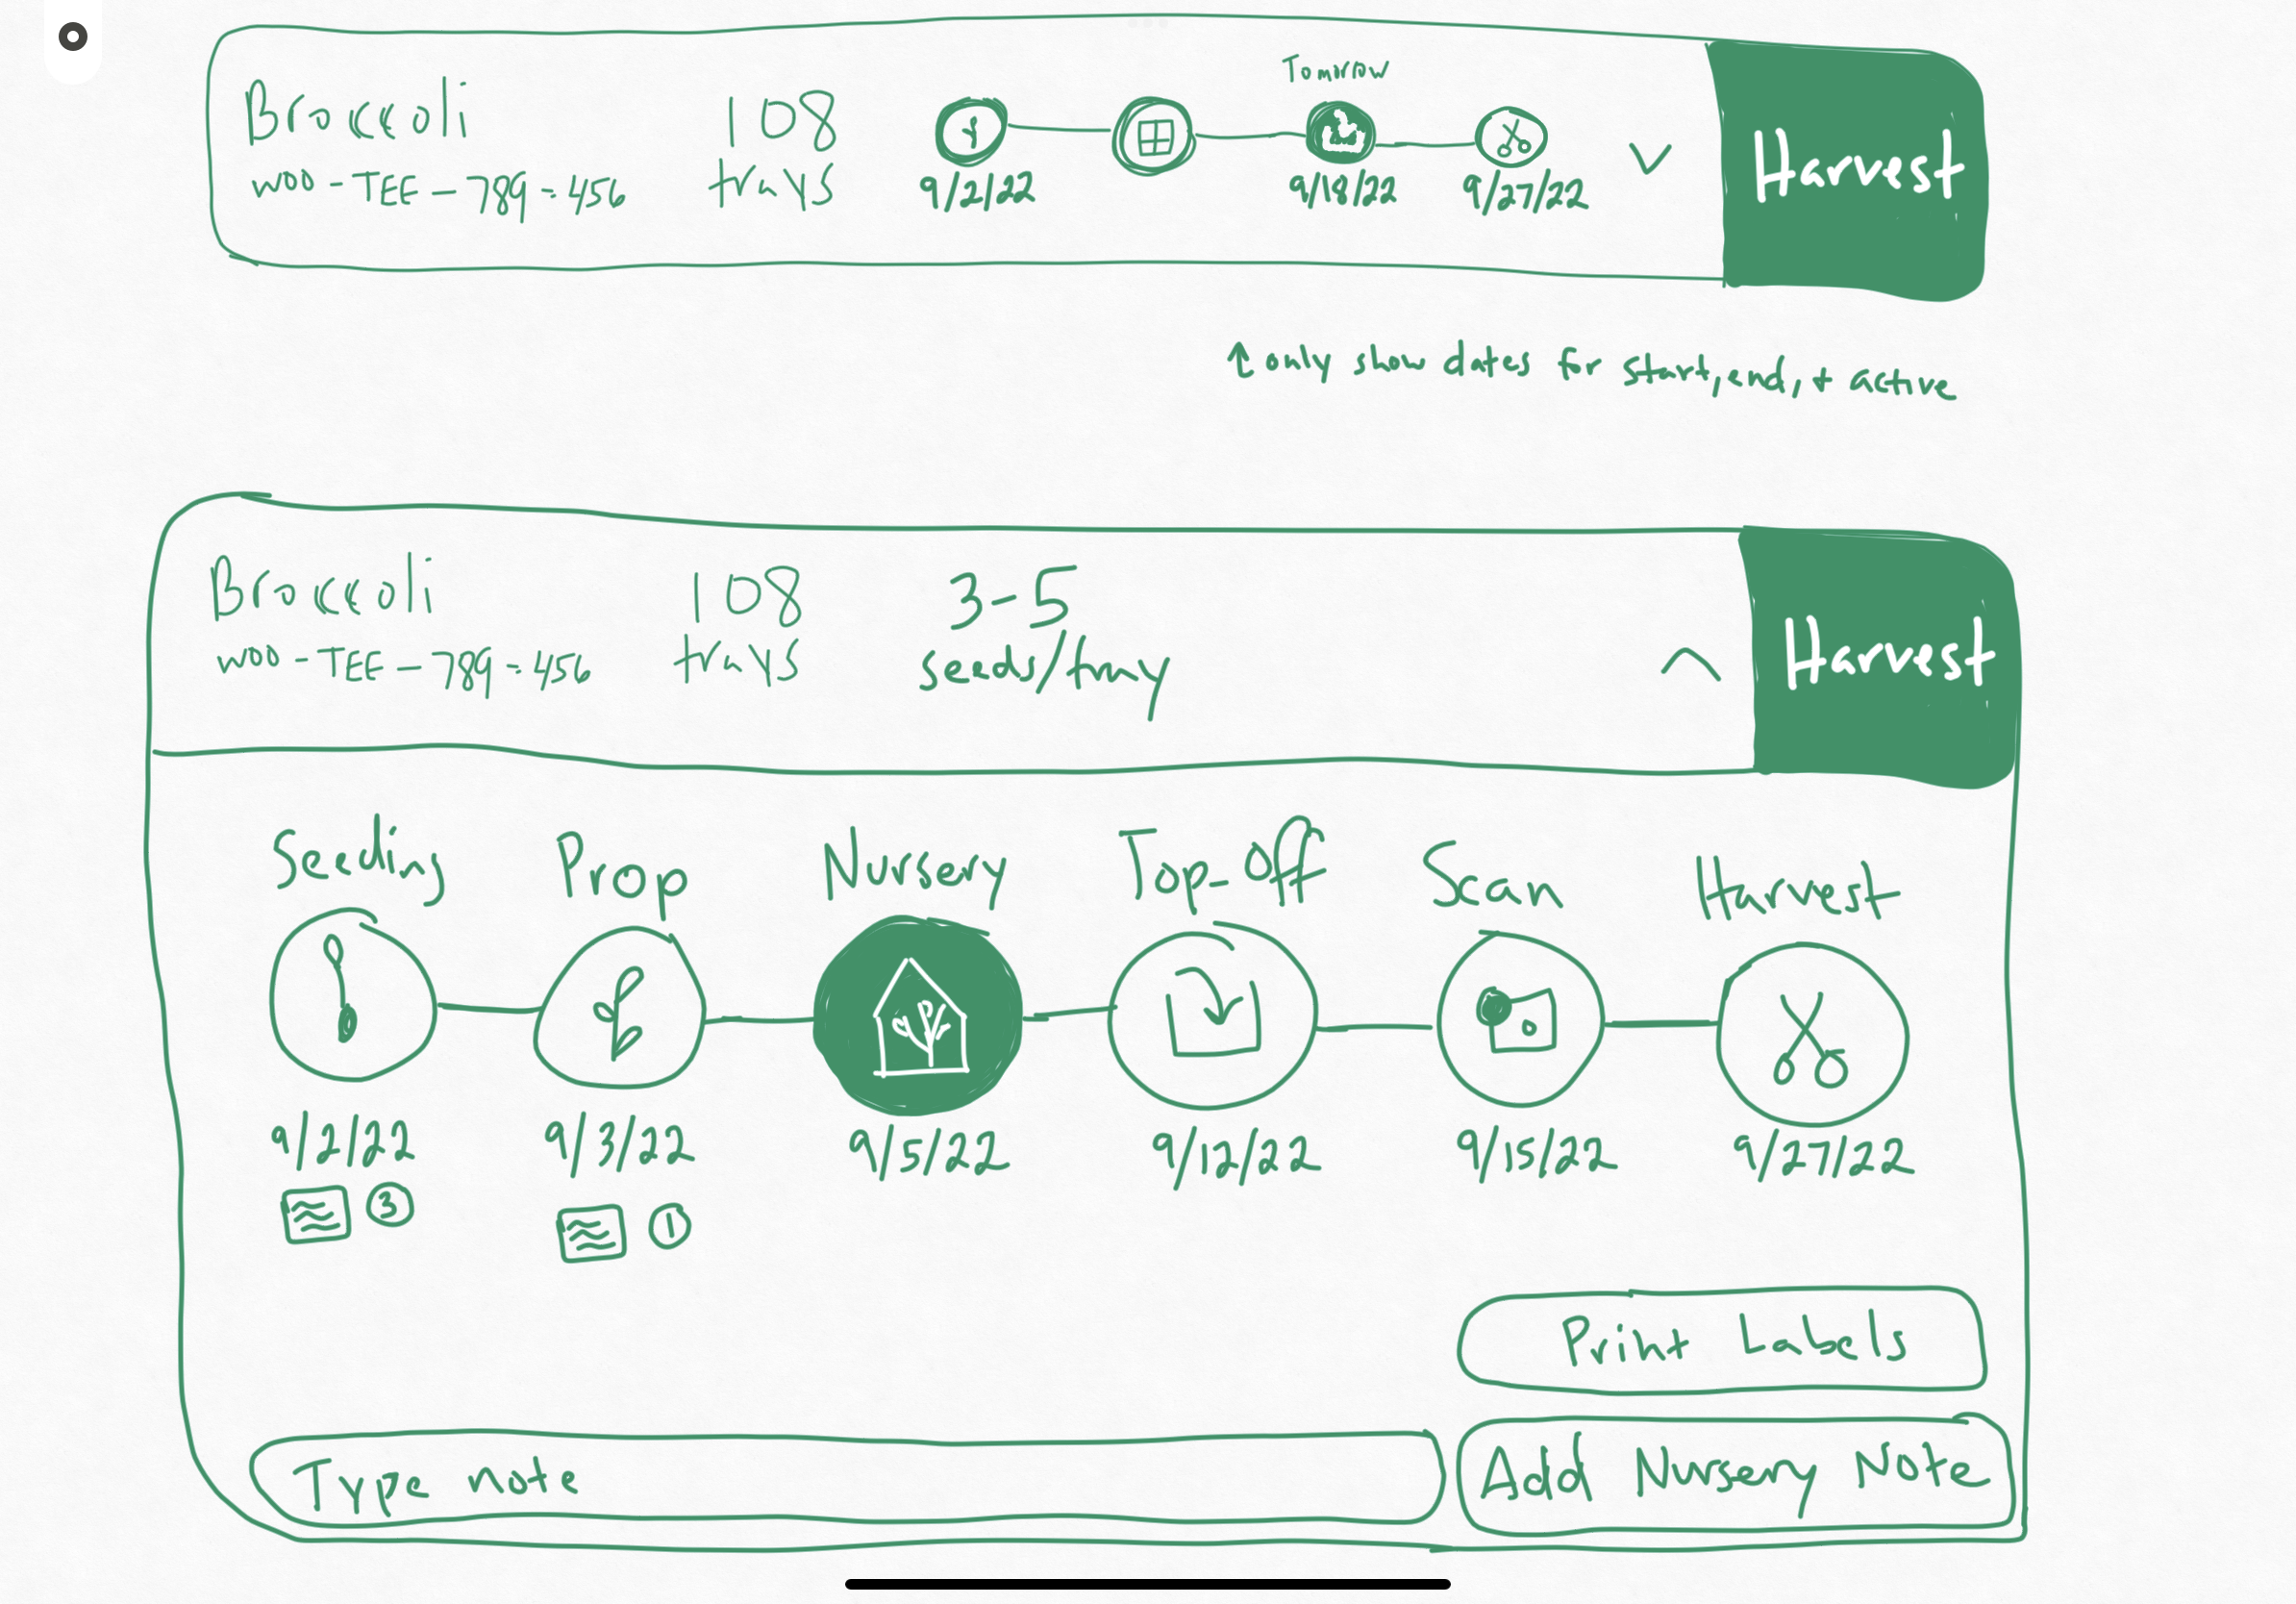 Tomorrow
Broccoli 108
W00-TEE-789-456 trays 9/2/22 9/18/22 9/27/22
Harvest
↑ only show dates for start, end, + active
Broccoli 108 3-5
W00-TEE-789-456 trays seeds/tray
Harvest
Seeding Prop Nursery Top-Off Scan Harvest
9/2/22 9/3/22 9/5/22 9/12/22 9/15/22 9/27/22
3 1
Print Labels
Type note
Add Nursery Note